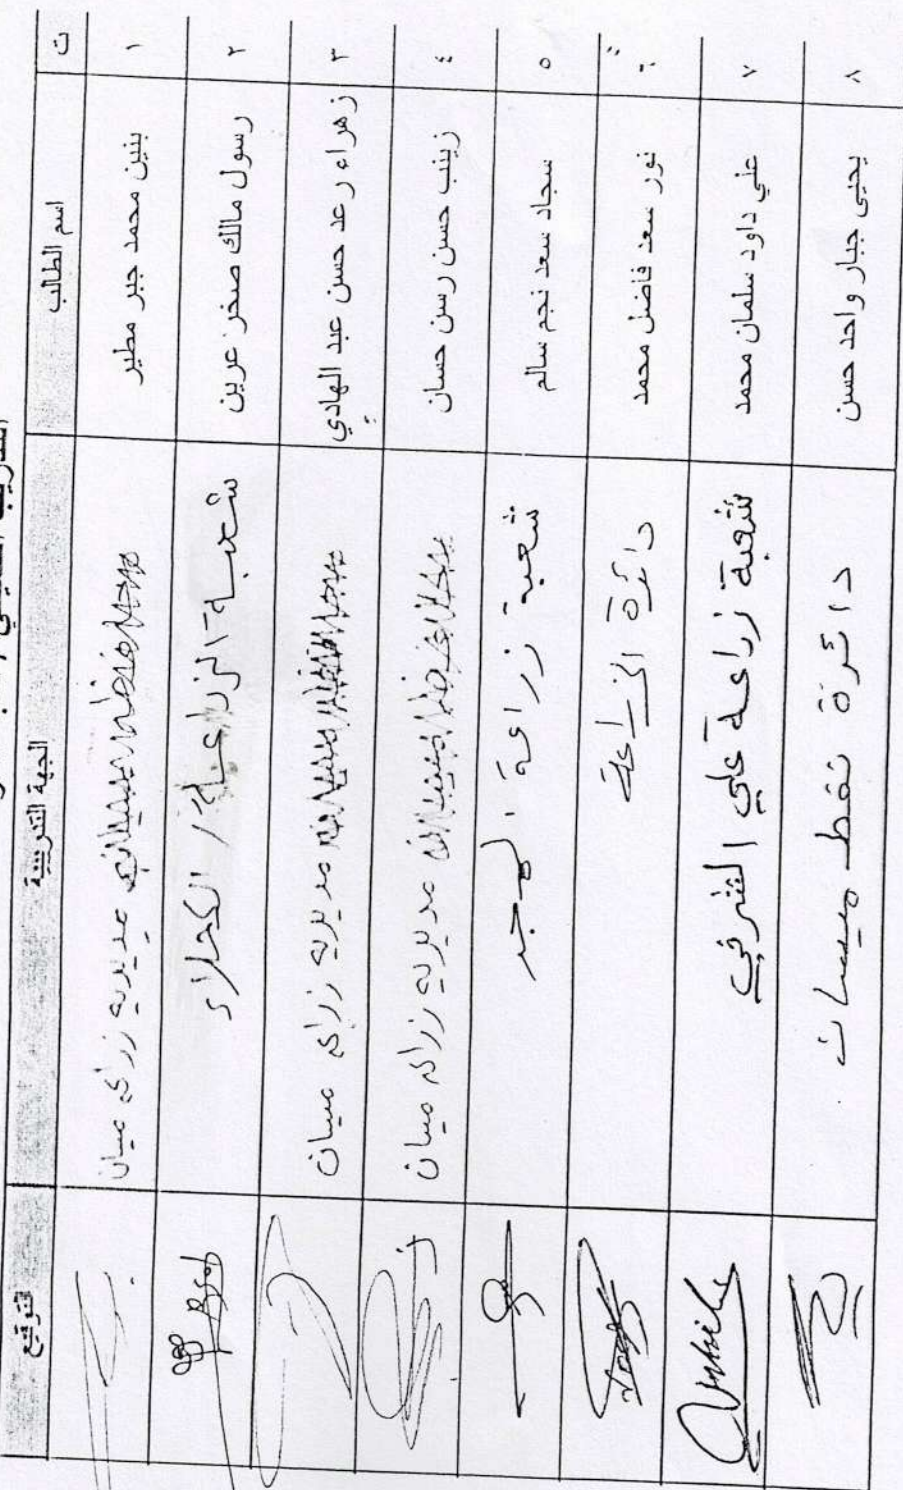 ت اسم الطالب الجهة التدريبية التوقيع
١ بنين محمد جبر مطير مديرية زراعة ميسان
٢ رسول مالك صخر عرين شعبة الزراعة / الكحلاء
٣ زهراء رعد حسن عبد الهادي مديرية زراعة ميسان
٤ زينب حسن رسن حسان مديرية زراعة ميسان
٥ سجاد سعد نجم سالم شعبة زراعة المجر
٦ نور سعد فاضل محمد دائرة الزراعة
٧ علي داود سلمان محمد شعبة زراعة علي الشرقي
٨ يحيى جبار واحد حسن دائرة نفط ميسان